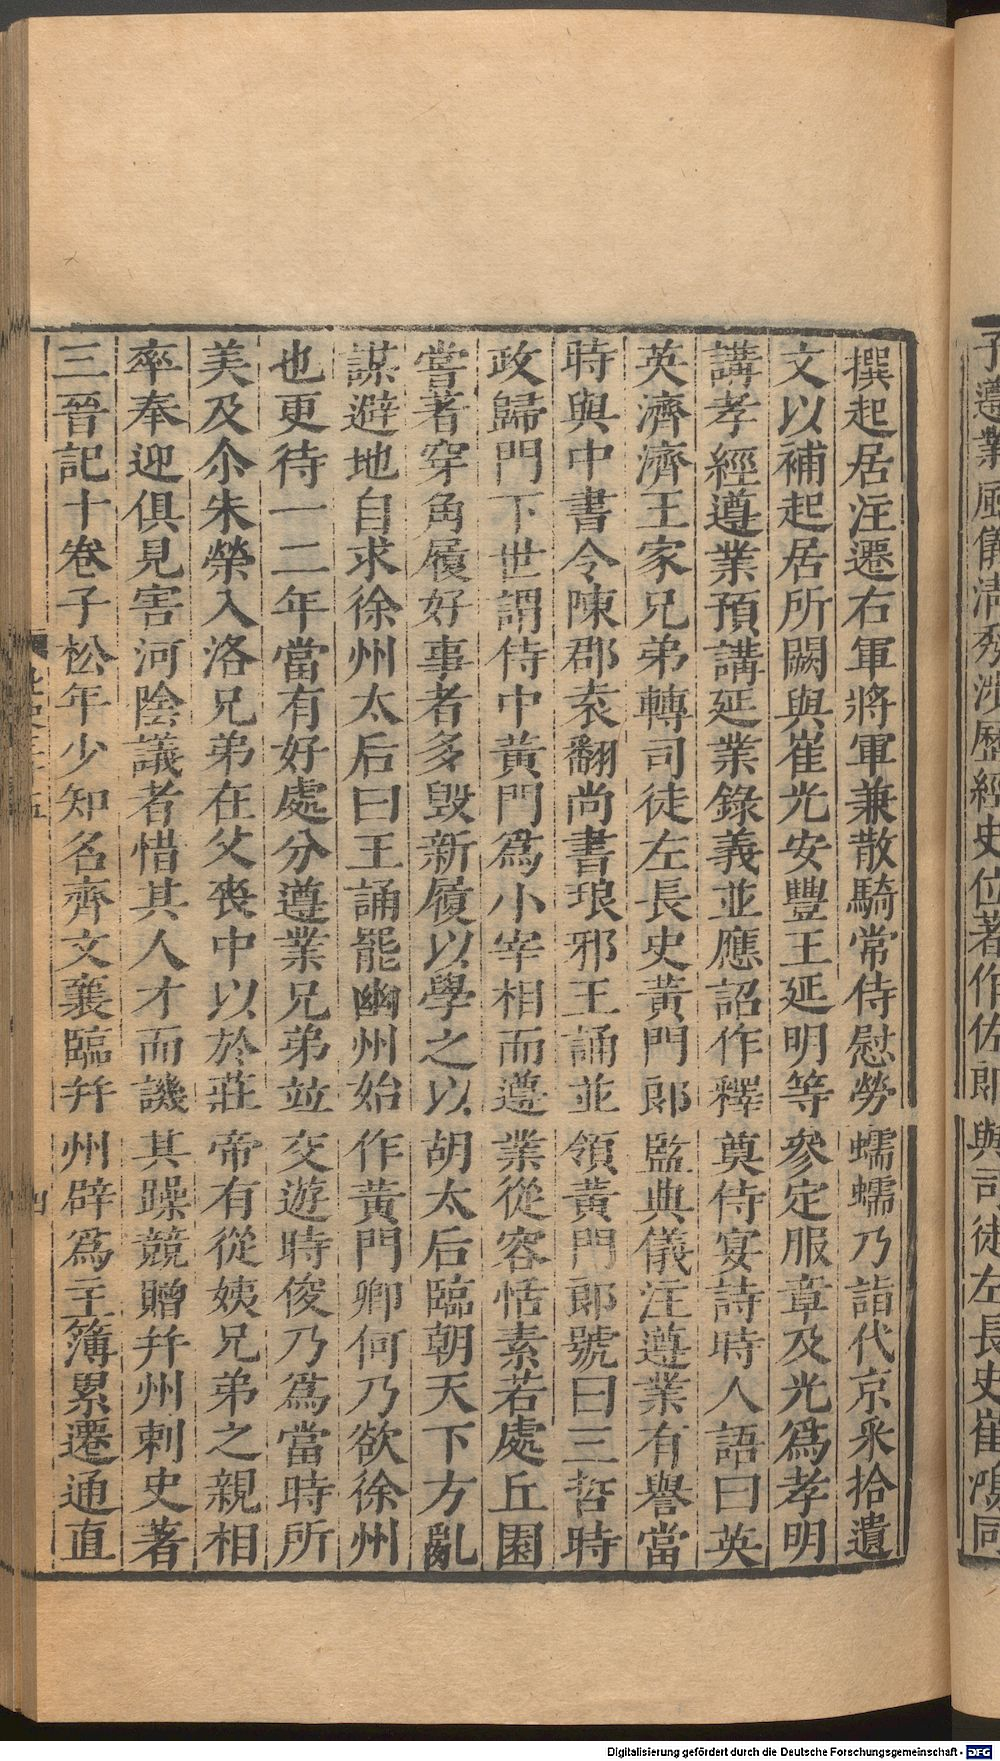 子遵業風儀清秀涉歷經史位著作佐郎與司徒左長史崔鴻同
撰起居注遷右軍將軍兼散騎常侍慰勞蠕蠕乃詣代京采拾遺
文以補起居所闕與崔光安豐王延明等參定服章及光爲孝明
講孝經遵業預講延業錄義並應詔作釋奠侍宴詩時人語曰英
英濟濟王家兄弟轉司徒左長史黃門郎監典儀注遵業有譽當
時與中書令陳郡袁翻尚書琅邪王誦並領黃門郎號曰三哲時
政歸門下世謂侍中黃門爲小宰相而遵業從容恬素若處丘園
嘗著穿角履好事者多毀新履以學之以胡太后臨朝天下方亂
謀避地自求徐州太后曰王誦罷幽州始作黃門卿何乃欲徐州
也更待一二年當有好處分遵業兄弟並交遊時俊乃爲當時所
美及尒朱榮入洛兄弟在父喪中以於莊帝有從姨兄弟之親相
率奉迎俱見害河陰議者惜其人才而譏其躁競贈幷州刺史著
三晉記十卷子松年少知名齊文襄臨幷州辟爲主簿累遷通直
Digitalisierung gefördert durch die Deutsche Forschungsgemeinschaft - DFG